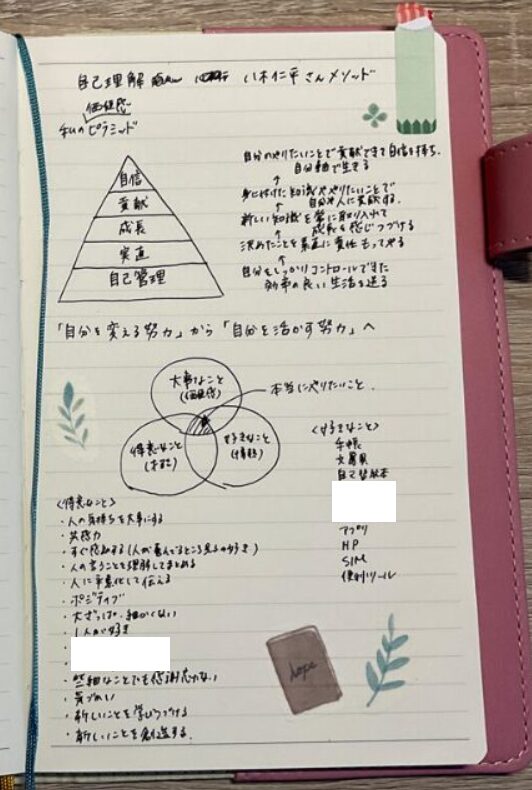 自己理解 八木仁平さんメソッド
価値感
私のピラミッド
自信
貢献
成長
実直
自己管理
自分のやりたいことで貢献できて自信を持ち、
自分軸で生きる
↑
身に付けた知識ややりたいことで
自分や人に貢献する。
↑
新しい知識を常に取り入れて
成長を感じつづける
↑
決めたことを素直に責任もってやる
↑
自分をしっかりコントロールできた
効率の良い生活を送る
「自分を変える努力」から「自分を活かす努力」へ
大事なこと
(価値感)
本当にやりたいこと。
得意なこと
(才能)
好きなこと
(情熱)
<好きなこと>
手帳
文房具
自己啓発本
アプリ
HP
SIM
便利ツール
<得意なこと>
・人の気持ちを大事にする
・共感力
・すぐ褒める(人が喜んでるところ見るの好き)
・人の言うことを理解してまとめる
・人に平意化して伝える
・ポジティブ
・大ざっぱ、細かくない
・1人が好き
・
・些細なことでも感謝忘れない
・気づかい
・新しいことを学びつづける
・新しいことを創造する。
hope